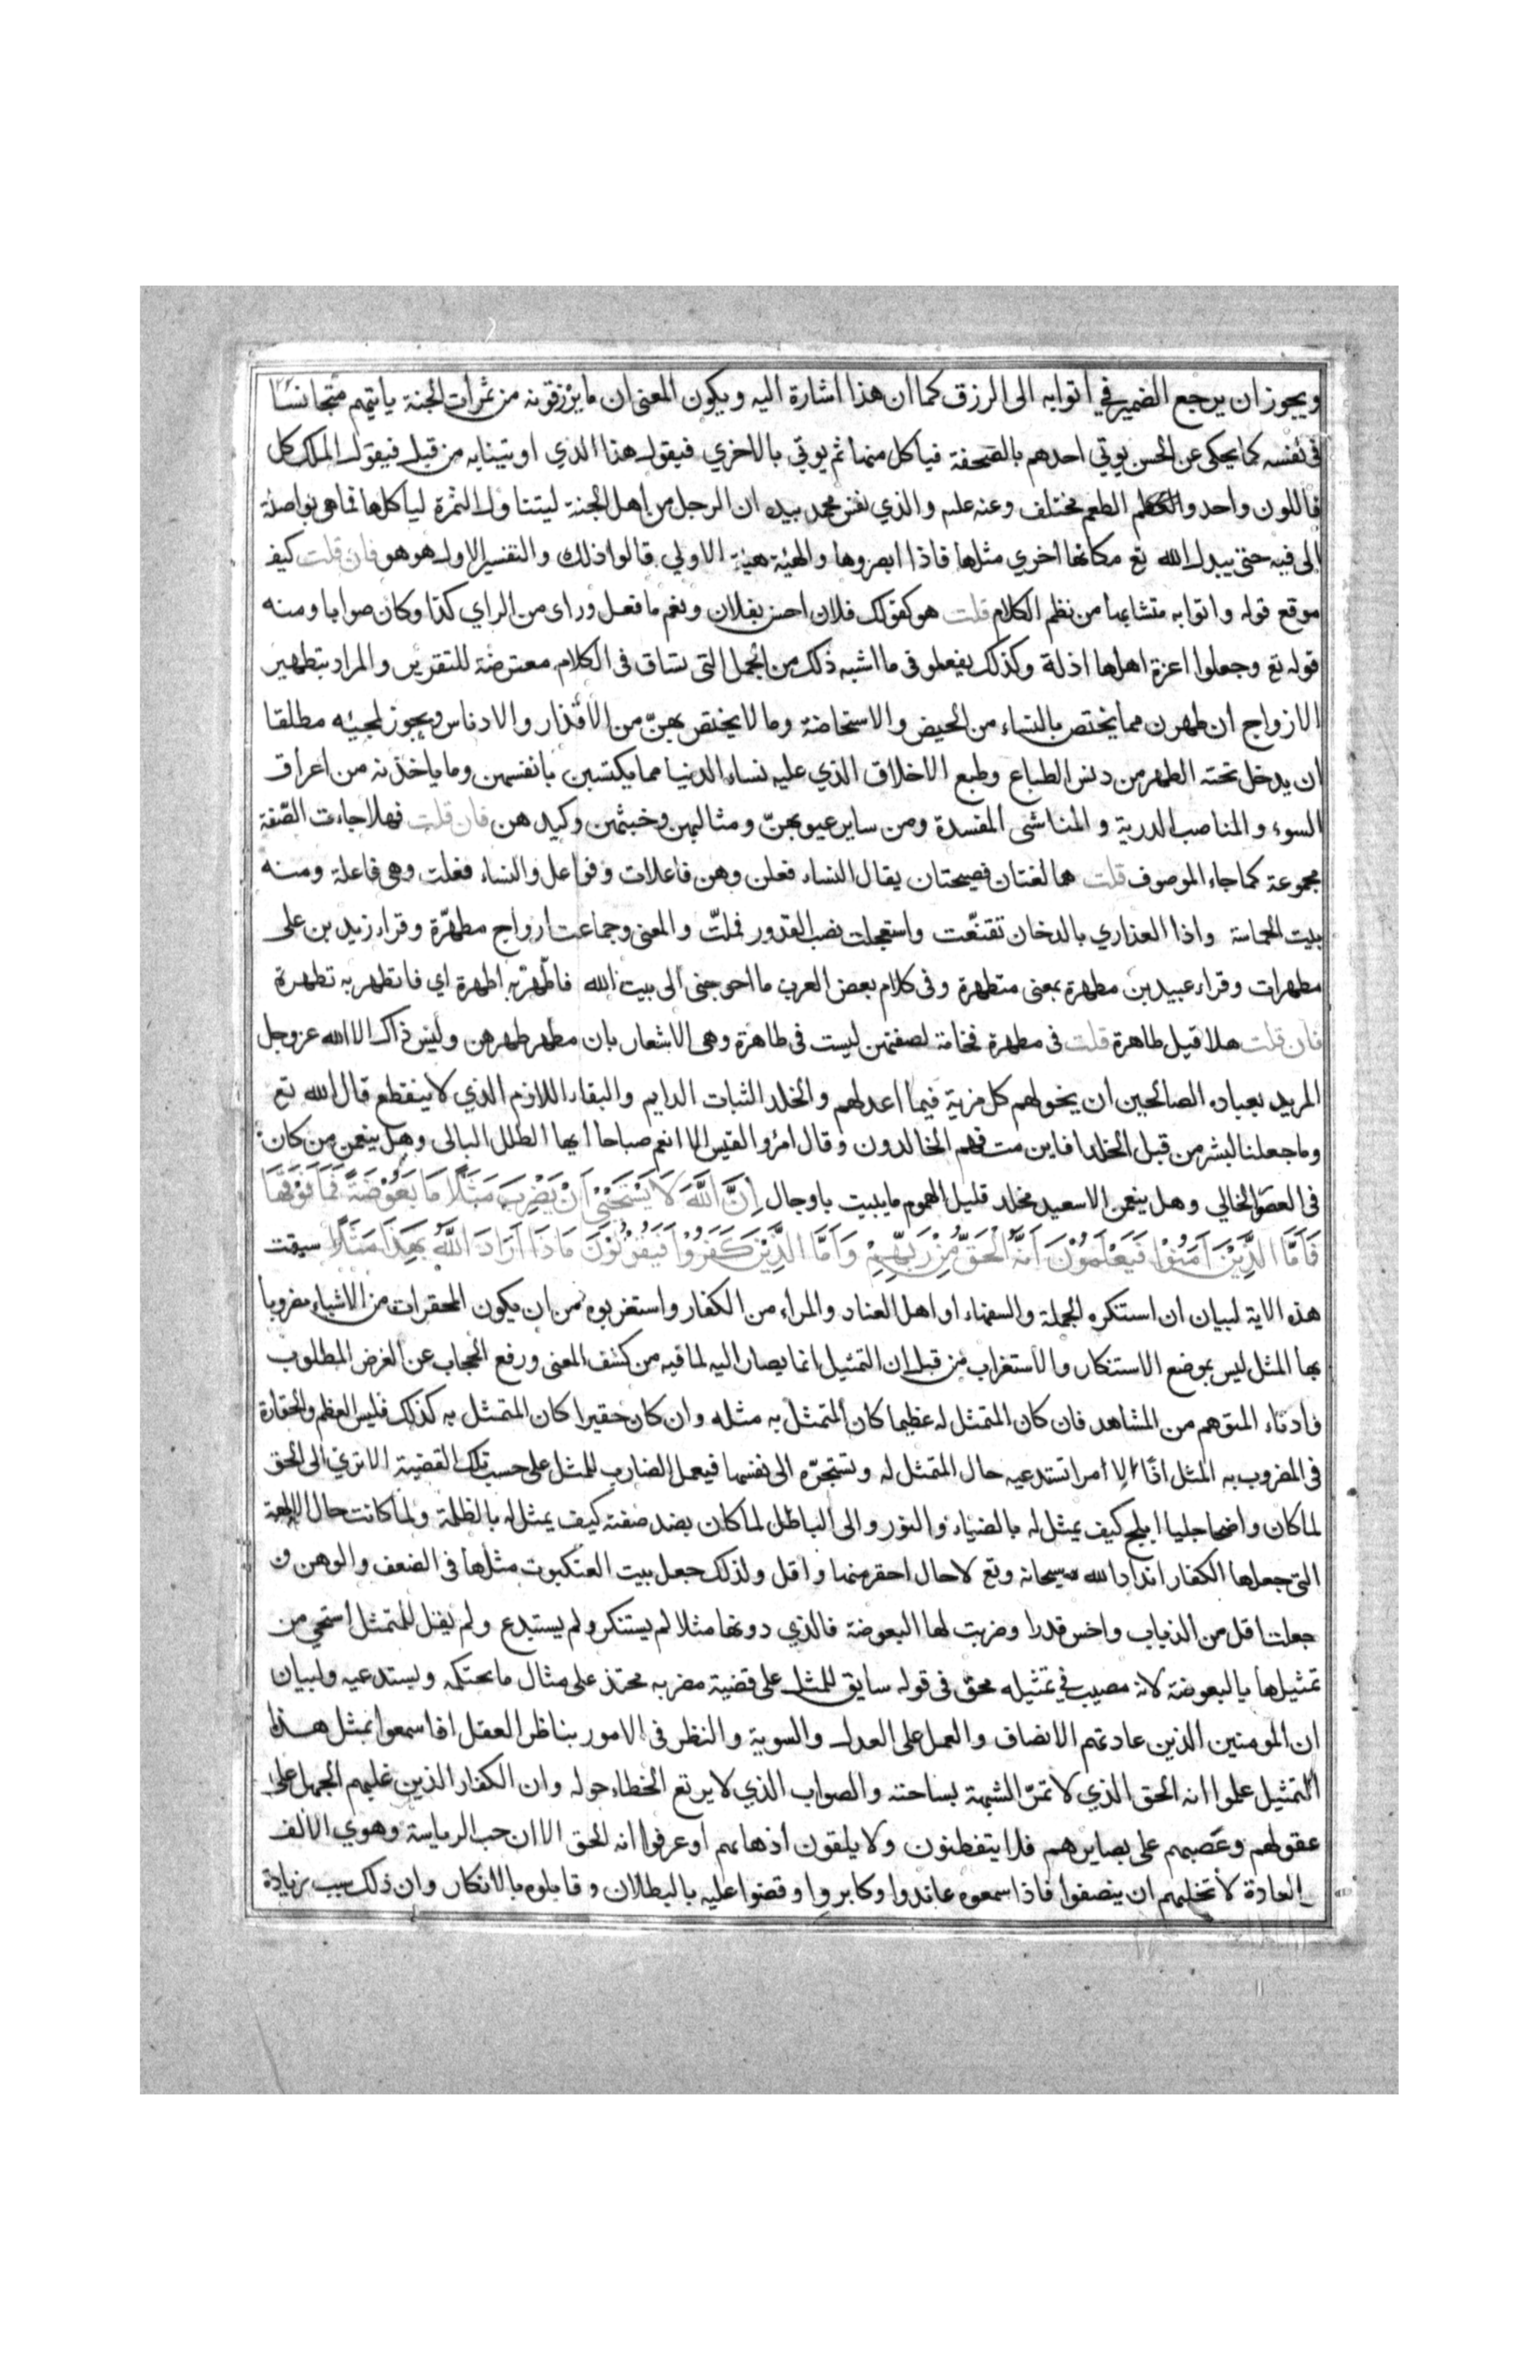 ويجوز ان يرجع الضمير في اتوابه الى الرزق كما ان هذا اشارة اليه ويكون المعنى ان ما يرزقونه من ثمرات الجنة ياتيهم متجانسا
فى نفسه كما يحكى عن الحسن يوتي احدهم بالصحفة فياكل منها ثم يوتي بالاخري فيقول هذا الذي اوتينا به من قبل فيقول الملك كل
فاللون واحد والطعم مختلف وعنه علىه والذي نفس محمد بيده ان الرجل من اهل الجنة ليتناول الثمرة لياكلها فما هي بواصلة
الى فيه حتى يبدل الله تع مكانها اخري مثلها فاذا ابصروها والهيئة هيئة الاولي قالوا ذلك والتفسير الاول هو هو فان قلت كيف
موقع قوله واتوابه متشابها من نظم الكلام قلت هو كقولك فلان احسن بفلان ونعم ما فعل وراى من الراي كذا وكان صوابا ومنه
قوله تع وجعلوا اعزة اهلها اذلة وكذلك يفعلون وما اشبه ذلك من الجمل التى تساق فى الكلام معترضة للتقرير والمراد بتطهير
الازواج ان طهرن مما يختص بالنساء من الحيض والاستحاضة وما لا يختص بهنّ من الاقذار والادناس ويجوز لمجيئه مطلقا
ان يدخل تحته الطهر من دنس الطباع وطبع الاخلاق الذي عليه نساء الدنيا مما يكتسبن بانفسهن وما ياخذنه من اعراق
السوء والمناصب الدرية والمناشى المفسدة ومن ساير عيوبهنّ ومثالبهن وخبثهن وكيدهن فان قلت فهلا جاءت الصّفة
مجموعة كما جاء الموصوف قلت هما لغتان فصيحتان يقال النساء فعلن وهن فاعلات وفواعل والنساء فعلت وهى فاعلة ومنه
بيت الحماسة واذا العذاري بالدخان تقنّعت واستعجلت نصب القدور فملّت والمعنى وجماعت ازواج مطهّرة وقراء زيد بن على
مطهرات وقراء عبيد بن مطهرة بمعنى متطهرة وفى كلام بعض العرب ما احوجنى الى بيت الله فاطّهّر به اطهرة اي فاتطهر به تطهرة
فان قلت هلا قيل طاهرة قلت فى مطهرة فخامة لصفتهن ليست فى طاهرة وهى الاشعار بان مطهر طهرهن وليس ذاك الا الله عز وجل
المريد بعباده الصالحين ان يخولهم كل مزية فيما اعد لهم والخلد الثبات الدايم والبقاء اللازم الذي لا ينقطع قال الله تع
وما جعلنا لبشر من قبل الخلد افاين مت فهم الخالدون وقال امرؤ القيس الا انعم صباحا ايها الطلل البالى وهل ينعمن من كان
فى العصر الخالي وهل ينعمن الا سعيد مخلد قليل الهموم ما يبيت باوجال اِنَّ اللَّهَ لَا يَسْتَحْيِي اَنْ يَضْرِبَ مَثَلًا مَا بَعُوْضَةً فَمَا فَوْقَهَا
فَاَمَّا الَّذِيْنَ اٰمَنُوْا فَيَعْلَمُوْنَ اَنَّهُ الْحَقُّ مِنْ رَبِّهِمْ وَاَمَّا الَّذِيْنَ كَفَرُوْا فَيَقُوْلُوْنَ مَاذَا اَرَادَ اللَّهُ بِهٰذَا مَثَلًا سيقت
هذه الاية لبيان ان استنكره الجهلة والسفهاء او اهل العناد والمراء من الكفار واستغربوه من ان يكون المحقرات من الاشياء مضروبا
بها المثل ليس بموضع الاستنكار والاستغراب من قبل ان التمثيل انما يصار اليه لما فيه من كشف المعنى ورفع الحجاب عن الغرض المطلوب
وادناء المتوهم من المشاهد فان كان المتمثل له عظيما كان المتمثل به مثله وان كان حقيرا كان المتمثل به كذلك فليس العظم والحقارة
فى المضروب به المثل اذًا الا امرا تستدعيه حال المتمثل له وتستجرّه الى نفسها فيعمل الضارب للمثل على حسب تلك القضية الا ترى الى الحق
لما كان واضحا جليا ابلج كيف يمثل له بالضياء والنور والى الباطل لما كان بضد صفته كيف يمثل له بالظلمة ولما كانت حال الالهة
التى جعلها الكفار اندادا لله سبحانه وتع لا حال احقر منها واقل ولذلك جعل بيت العنكبوت مثلها فى الضعف والوهن و
جعلت اقل من الذباب واخس قدرا وضربت لها البعوضة فالذي دونها مثلا لم يستنكر ولم يستبدع ولم يقل للمتمثل استحي من
تمثيلها بالبعوضة لانه مصيب في تمثيله محق فى قوله سايق للمثل على قضية مضربه محتذ على مثال ما يحتكمه ويستدعيه ولبيان
ان المومنين الذين عادتهم الانصاف والعمل على العدل والسوية والنظر فى الامور بناظر العقل اذا سمعوا بمثل هذا
التمثيل علموا انه الحق الذي لا تمرّ الشبهة بساحته والصواب الذي لا يرتع الخطاء حوله وان الكفار الذين غلبهم الجهل على
عقولهم وغصبهم على بصايرهم فلا يتفطنون ولا يلقون اذهانهم او عرفوا انه الحق الا ان حب الرياسة وهوي الالف
العادة لا تخليهم ان ينصفوا فاذا سمعوه عاندوا وكابروا وقضوا عليه بالبطلان وقابلوه بالانكار وان ذلك سبب زيادة